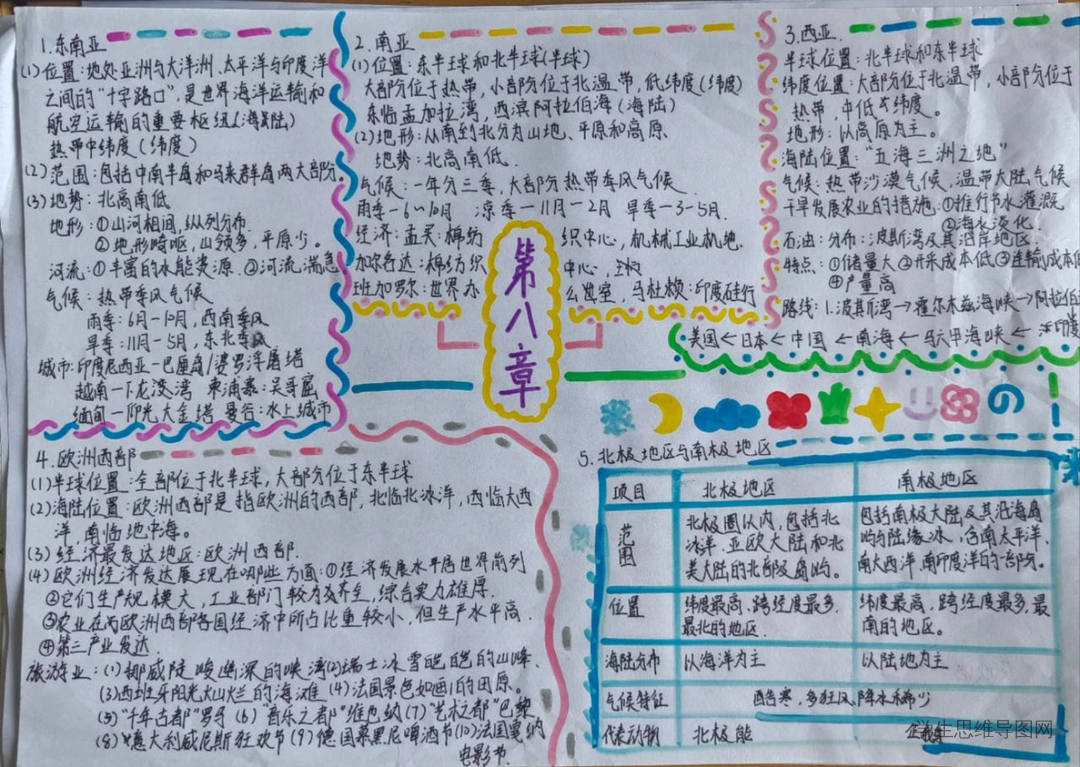 1.东南亚
(1)位置:地处亚洲与大洋洲、太平洋与印度洋
之间的“十字路口”,是世界海洋运输和
航空运输的重要枢纽(海陆)
热带中纬度(纬度)
(2)范围:包括中南半岛和马来群岛两大部分.
(3)地势:北高南低
地形:①山河相间,纵列分布.
②地形崎岖,山岭多,平原少。
河流:①丰富的水能资源.②河流湍急
气候:热带季风气候
雨季:6月-10月,西南季风
旱季:11月-5月,东北季风
城市:印度尼西亚-巴厘岛/婆罗浮屠塔
越南-下龙湾 柬浦寨:吴哥窟
缅甸-仰光大金塔 曼谷:水上城市
2.南亚
(1)位置:东半球和北半球(半球)
大部分位于热带,小部分位于北温带,低纬度(纬度)
东临孟加拉湾,西濒阿拉伯海(海陆)
(2)地形:从南到北分为山地、平原和高原.
地势:北高南低.
气候:一年分三季,大部分热带季风气候.
雨季-6~10月 凉季-11月-2月 旱季-3-5月.
经济:孟买:棉纺织中心,机械工业机地.
加尔各达:棉纺织中心,
班加罗尔:世界办公室,马杜赖:印度硅行
第八章
3.西亚.
半球位置:北半球和东半球
纬度位置:大部分位于北温带,小部分位于
热带,中低纬度。
地形:以高原为主。
海陆位置:“五海三洲之地”
气候:热带沙漠气候,温带大陆气候
干旱发展农业的措施:①推行节水灌溉
②海水淡化.
石油:分布:波斯湾及其沿岸地区.
特点:①储量大②开采成本低③运输成本低
④产量高
路线:1.波斯湾→霍尔木兹海峡→阿拉伯
美国←日本←中国←南海←马六甲海峡←印度
4.欧洲西部
(1)半球位置:全部位于北半球,大部分位于东半球
(2)海陆位置:欧洲西部是指欧洲的西部,北临北冰洋,西临大西
洋,南临地中海。
(3)经济最发达地区:欧洲西部.
(4)欧洲经济发达展现在哪些方面:①经济发展水平居世界前列
②它们生产规模大,工业部门较为齐全,综合实力雄厚.
③农业在欧洲西部各国经济中所占比重较小,但生产水平高.
④第三产业发达.
旅游业:(1)挪威陡峻幽深的峡湾(2)瑞士冰雪皑皑的山峰、
(3)西班牙阳光灿烂的海滩(4)法国景色如画的田原。
(5)“千年古都”罗马(6)“音乐之都”维也纳(7)“艺术之都”巴黎
(8)意大利威尼斯狂欢节(9)德国慕黑尼啤酒节(10)法国戛纳
电影节.
5.北极地区与南极地区
项目 北极地区 南极地区
范围 北极圈以内,包括北 包括南极大陆及其沿海岛
冰洋.亚欧大陆和北 屿与陆缘冰,含南太平洋、
美大陆的北部及岛屿。 南大西洋,南印度洋的一部分。
位置 纬度最高,跨经度最多. 纬度最高,跨经度最多,最
最北的地区. 南的地区。
海陆分布 以海洋为主 以陆地为主
气候特征 酷寒,多狂风,降水稀少
代表动物 北极熊 企鹅
学生思维导图网